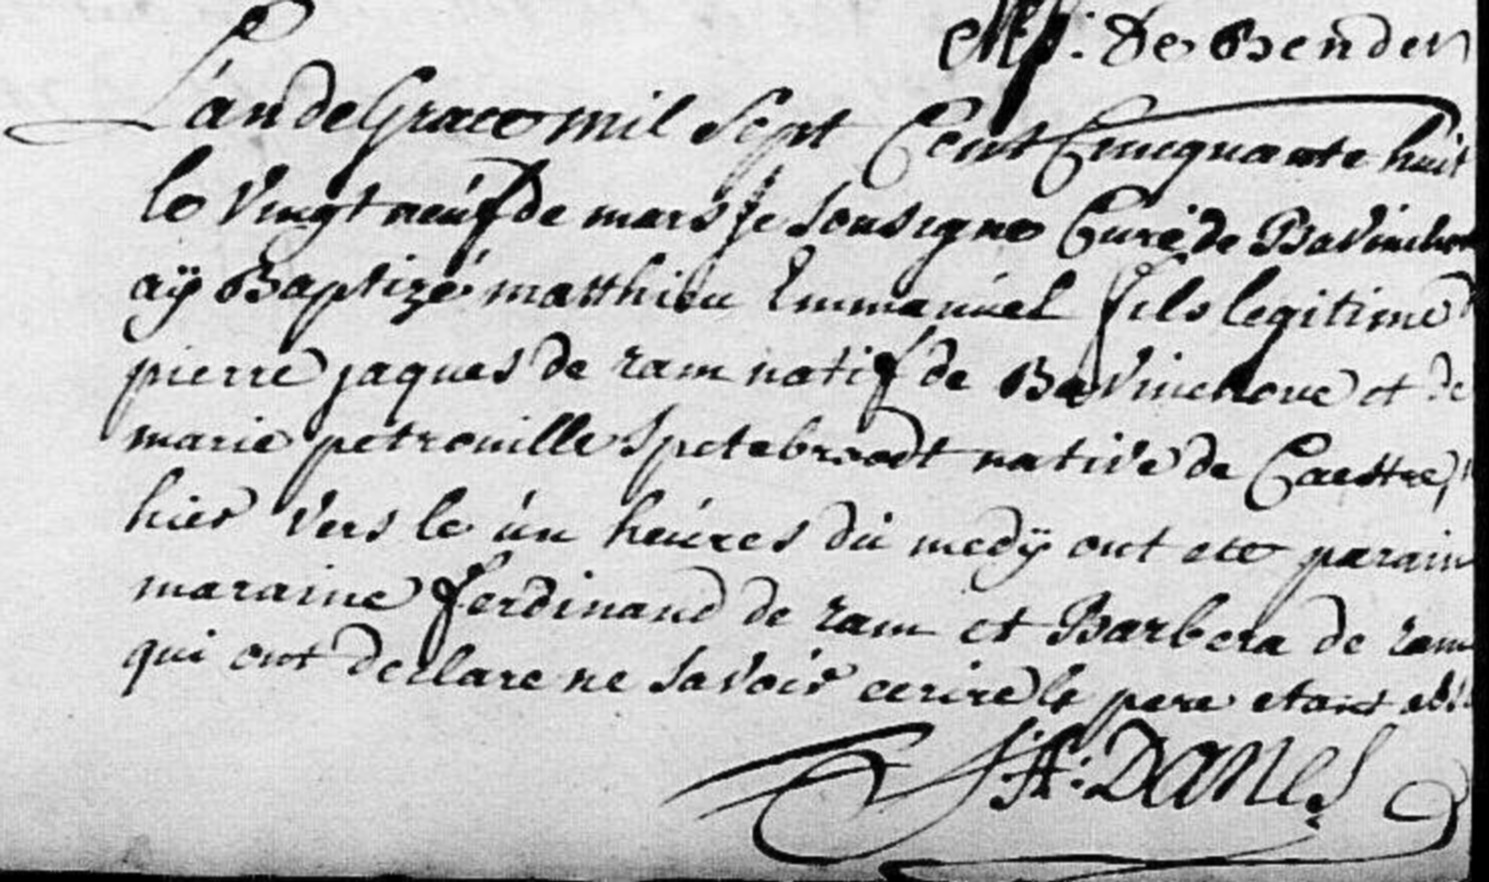 De Bender
L'an de Grace mil Sept Cent Cincquante huit
le Vingt neúf de mars je Sousigne Curé de Bavinchove
aÿ Baptizé matthieu Emmanúel fils legitime
pierre jaques de ram natif de BaVinchove et de
marie petronille Spetebroodt native de Caestre,
hier vers le ún heúres dú medÿ ont ete parain
maraine ferdinand de ram et Barbera de ram
qui ont declare ne savoir ecrire le pere etant
Danes